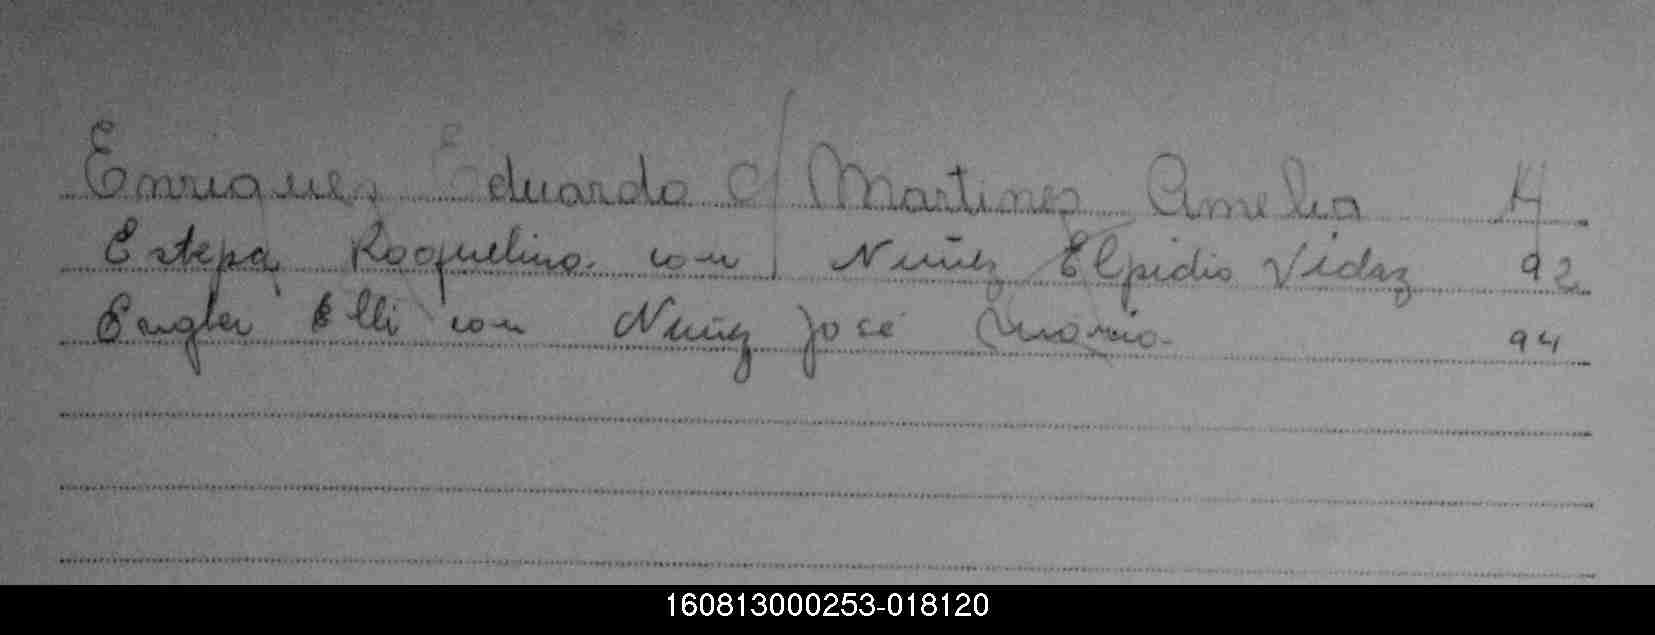 Enriquez Eduardo c/ Martinez Amelia 14
Estepa, Roquelina. con Nuñez Elpidio Vidaz 92
Engler Elli con Nuñez José Maria. 94
160813000253-018120